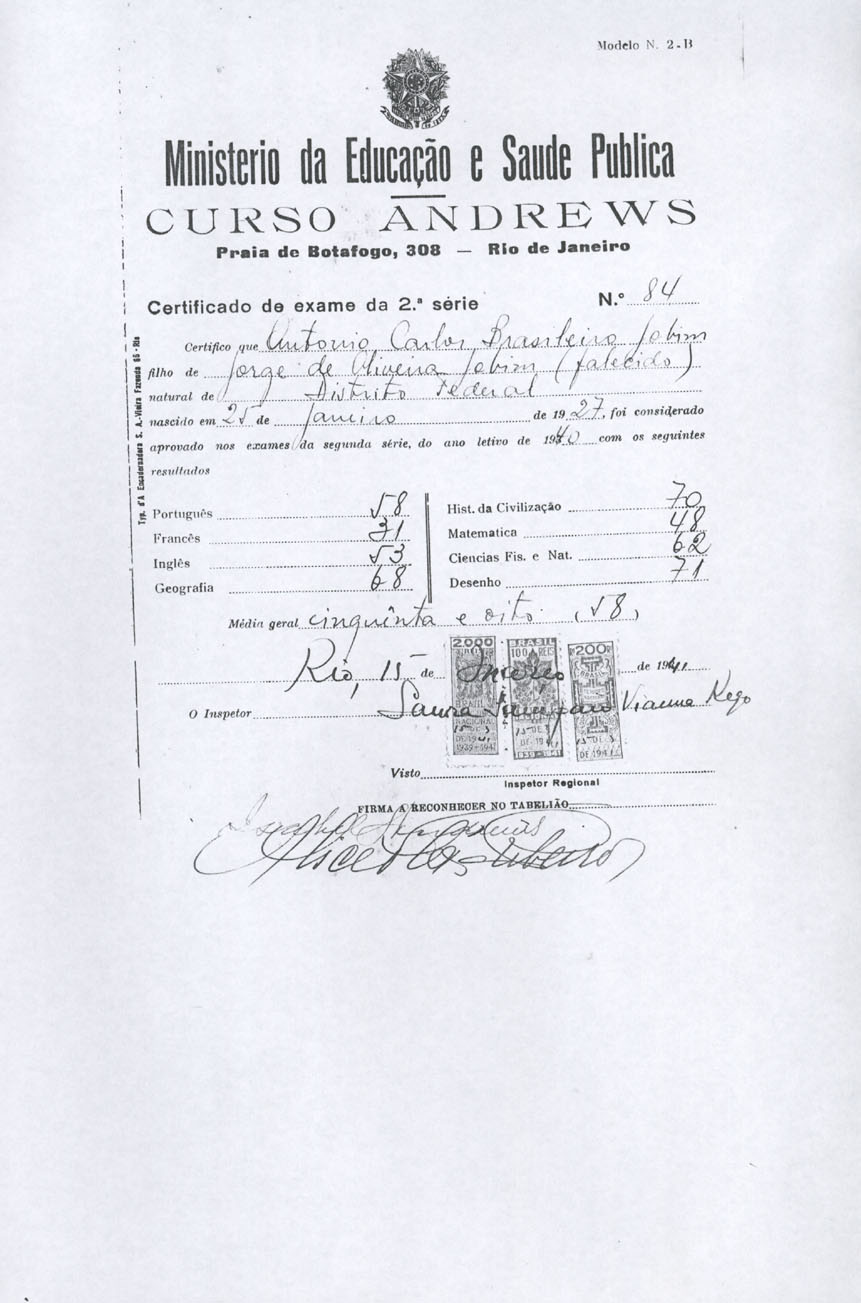 Modelo N. 2-B
Ministerio da Educação e Saude Publica
CURSO ANDREWS
Praia de Botafogo, 308 — Rio de Janeiro
Certificado de exame da 2.ª série N.º 84
Certifico que Antonio Carlos Brasileiro Jobim
filho de Jorge de Oliveira Jobim (falecido)
natural de Distrito Federal
nascido em 25 de janeiro de 1927, foi considerado
aprovado nos exames da segunda série, do ano letivo de 1940 com os seguintes
resultados
Português 58
Francês 31
Inglês 53
Geografia 68
Hist. da Civilização 70
Matematica 48
Ciencias Fis. e Nat. 62
Desenho 71
Média geral cinquênta e oito (58)
Rio, 15 de Março de 1941
O Inspetor Laura Vianna Rego
2.000
BRASIL
100 REIS
200
BRASIL
Visto
Inspetor Regional
FIRMA A RECONHECER NO TABELIÃO
Typ. d'A Encadernadora S. A.-Vieira Fazenda 66 - Rio